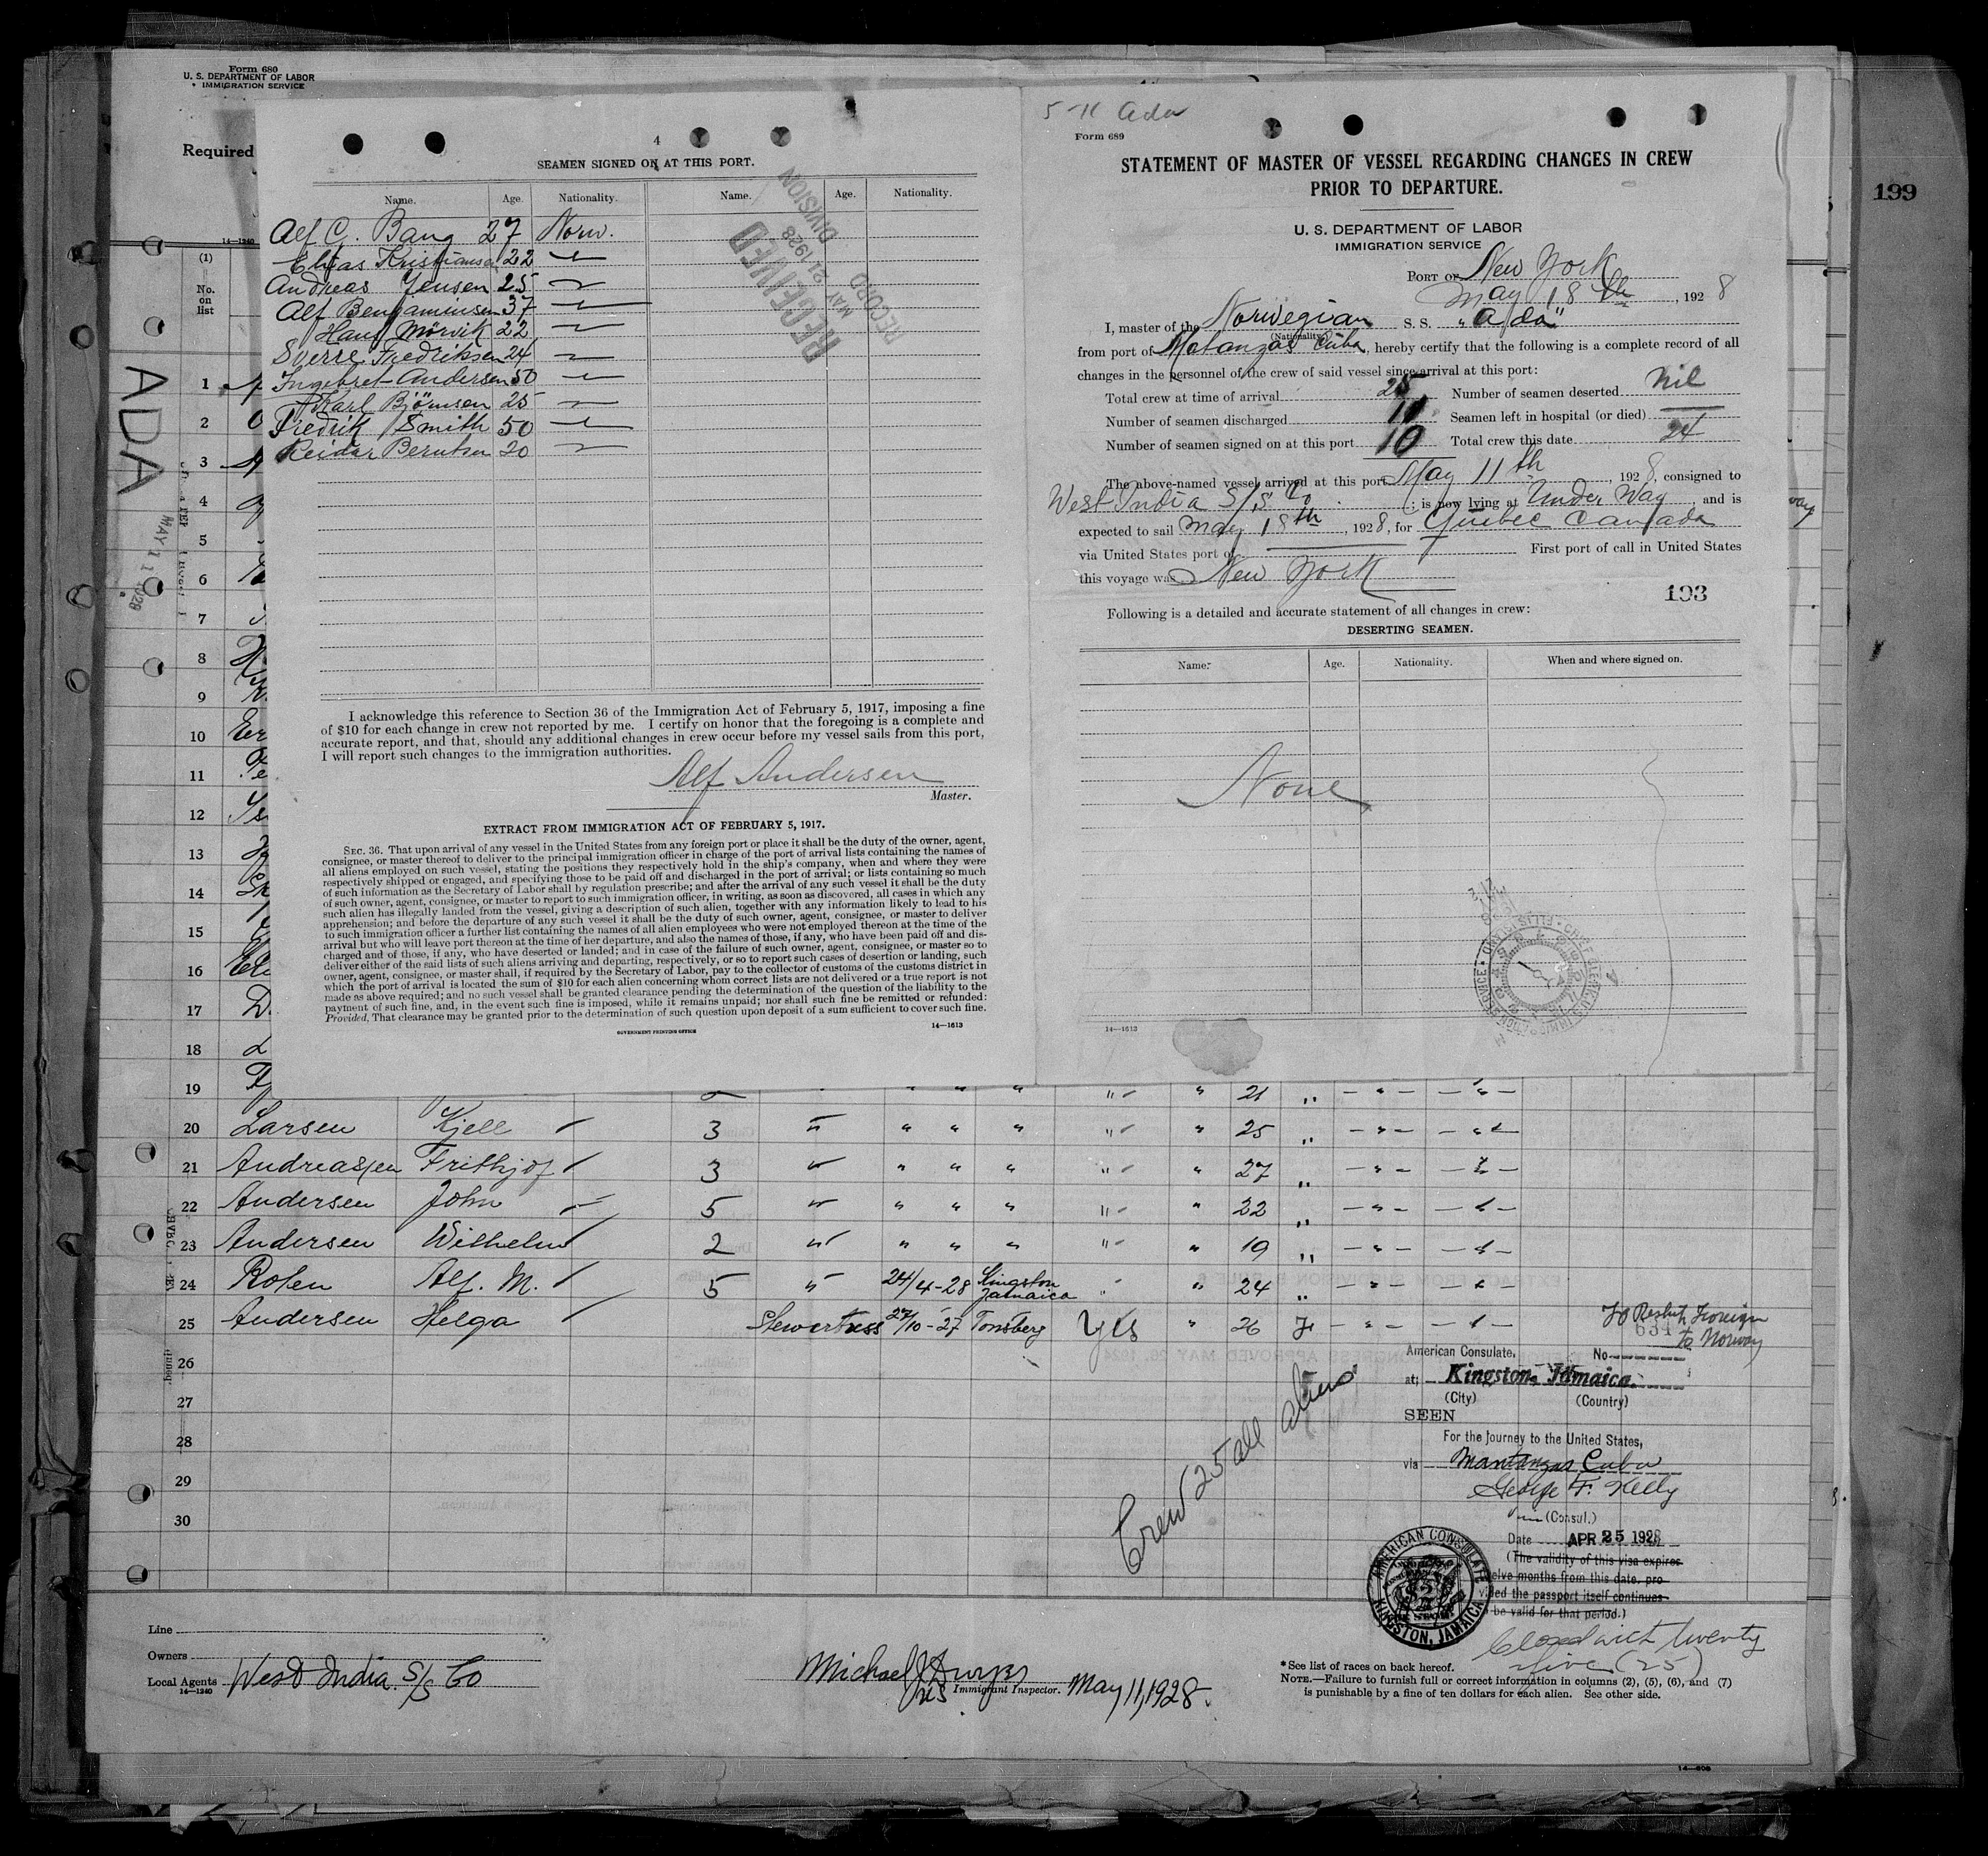 Form 680
U. S. DEPARTMENT OF LABOR
IMMIGRATION SERVICE
Required
199
14—1240
(1)
No.
on
list
ADA
MAY 11 1928
1
2
3
4
5
6
7
8
9
10
11
12
13
14
15
16
17
18
19
4
SEAMEN SIGNED ON AT THIS PORT.
Name. Age. Nationality. Name. Age. Nationality.
Alf C. Bang 27 Norw.
Elias Kristiansen 22 —"—
Andreas Jensen 25 —"—
Alf Benjaminsen 37 —"—
Hans Mörvik 22 —"—
Sverre Fredriksen 24 —"—
Ingebret Andersen 50 —"—
Karl Björnsen 25 —"—
Fredrik Smith 50 —"—
Reidar Berntsen 20 —"—
RECEIVED
MAY 21 1928
RECORD DIVISION
I acknowledge this reference to Section 36 of the Immigration Act of February 5, 1917, imposing a fine
of $10 for each change in crew not reported by me. I certify on honor that the foregoing is a complete and
accurate report, and that, should any additional changes in crew occur before my vessel sails from this port,
I will report such changes to the immigration authorities.
Alf Andersen
Master.
EXTRACT FROM IMMIGRATION ACT OF FEBRUARY 5, 1917.
SEC. 36. That upon arrival of any vessel in the United States from any foreign port or place it shall be the duty of the owner, agent,
consignee, or master thereof to deliver to the principal immigration officer in charge of the port of arrival lists containing the names of
all aliens employed on such vessel, stating the positions they respectively hold in the ship's company, when and where they were
respectively shipped or engaged, and specifying those to be paid off and discharged in the port of arrival; or lists containing so much
of such information as the Secretary of Labor shall by regulation prescribe; and after the arrival of any such vessel it shall be the duty
of such owner, agent, consignee, or master to report to such immigration officer, in writing, as soon as discovered, all cases in which any
such alien has illegally landed from the vessel, giving a description of such alien, together with any information likely to lead to his
apprehension; and before the departure of any such vessel it shall be the duty of such owner, agent, consignee, or master to deliver
to such immigration officer a further list containing the names of all alien employees who were not employed thereon at the time of the
arrival but who will leave port thereon at the time of her departure, and also the names of those, if any, who have been paid off and dis-
charged and of those, if any, who have deserted or landed; and in case of the failure of such owner, agent, consignee, or master so to
deliver either of the said lists of such aliens arriving and departing, respectively, or so to report such cases of desertion or landing, such
owner, agent, consignee, or master shall, if required by the Secretary of Labor, pay to the collector of customs of the customs district in
which the port of arrival is located the sum of $10 for each alien concerning whom correct lists are not delivered or a true report is not
made as above required; and no such vessel shall be granted clearance pending the determination of the question of the liability to the
payment of such fine, and, in the event such fine is imposed, while it remains unpaid; nor shall such fine be remitted or refunded:
Provided, That clearance may be granted prior to the determination of such question upon deposit of a sum sufficient to cover such fine.
GOVERNMENT PRINTING OFFICE 14—1613
5-11 Ada
Form 689
STATEMENT OF MASTER OF VESSEL REGARDING CHANGES IN CREW
PRIOR TO DEPARTURE.
U. S. DEPARTMENT OF LABOR
IMMIGRATION SERVICE
PORT OF New York
May 18th, 1928
I, master of the Norwegian S. S. "Ada"
(Nationality)
from port of Matanzas Cuba, hereby certify that the following is a complete record of all
changes in the personnel of the crew of said vessel since arrival at this port:
Total crew at time of arrival 25 Number of seamen deserted nil
Number of seamen discharged 11 Seamen left in hospital (or died) —
Number of seamen signed on at this port 10 Total crew this date 24
The above-named vessel arrived at this port May 11th, 1928, consigned to
West India S/S Co; is now lying at Under Way, and is
expected to sail May 18th, 1928, for Quebec Canada
via United States port of — First port of call in United States
this voyage was New York
193
Following is a detailed and accurate statement of all changes in crew:
DESERTING SEAMEN.
Name. Age. Nationality. When and where signed on.
None
14—1613
19 21 „ — " — — " —
20 Larsen Kjell 3 " " " " " " 25 „ — " — — " —
21 Andreassen Frithjof 3 " " " " " " 27 „ — " — — " —
22 Andersen John 5 " " " " " " 22 „ — " — — " —
23 Andersen Wilhelm 2 " " " " " " 19 „ — " — — " —
24 Alf. M. 5 " 24/4-28 Kingston Jamaica " " 24 „ — " — — " —
25 Andersen Helga Stewertess 27/10-27 Tonsberg Yes " 26 F — " — — " —
26
27
28
29
30
To Reship Foreign
to Norway
634
American Consulate, No
at; Kingston, Jamaica.
(City) (Country)
SEEN
For the journey to the United States,
via Mantanzas Cuba
George F. Kelly
(Consul.)
Date APR 25 1928
(The validity of this visa expires
twelve months from this date, pro-
vided the passport itself continues
to be valid for that period.)
AMERICAN CONSULATE
KINGSTON, JAMAICA
Crew 25 all aliens
Closed with twenty
five (25)
Line
Owners
Local Agents West India S/S Co
14—1240
Michael J Dwyer
Immigrant Inspector. May 11, 1928.
*See list of races on back hereof.
NOTE.—Failure to furnish full or correct information in columns (2), (5), (6), and (7)
is punishable by a fine of ten dollars for each alien. See other side.
14—608